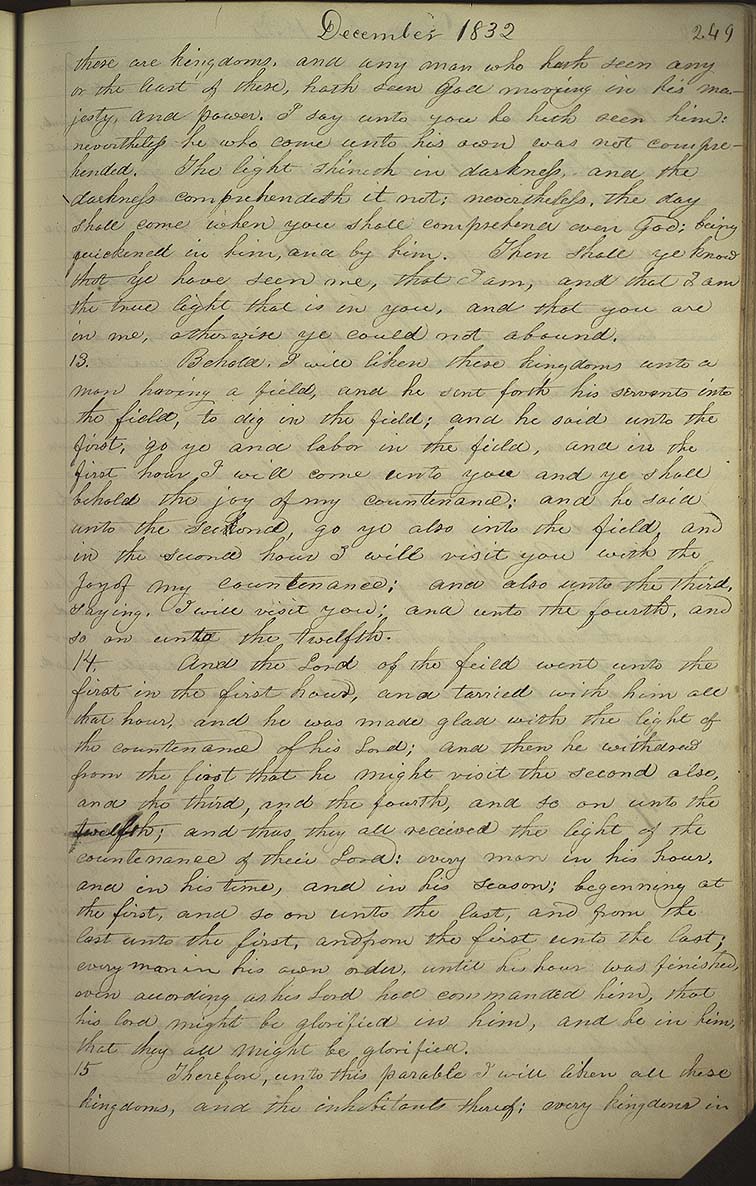 December 1832 249
these are kingdoms, and any man who hath seen any
or the least of these, hath seen God moving in his ma-
jesty, and power. I say unto you he hath seen him:
nevertheless he who come unto his own was not compre-
hended. The light shineth in darkness, and the
darkness comprehendeth it not; nevertheless, the day
shall come when you shall comprehend even God; being
quickened in him, and by him. Then shall ye know
that ye have seen me, that I am, and that I am
the true light that is in you, and that you are
in me, otherwise ye could not abound.
13. Behold, I will liken these kingdoms unto a
man having a field, and he sent forth his servants into
the field, to dig in the field; and he said unto the
first, go ye and labor in the field, and in the
first hour I will come unto you and ye shall
behold the joy of my countenance; and he said
unto the second, go ye also into the field, and
in the second hour I will visit you with the
joy of my countenance; and also unto the third,
saying, I will visit you; and unto the fourth, and
so on unto the twelfth.
14. And the Lord of the feild went unto the
first in the first hour, and tarried with him all
that hour, and he was made glad with the light of
the countenance of his Lord; and then he withdrew
from the first that he might visit the second also,
and the third, and the fourth, and so on unto the
twelfth; and thus they all received the light of the
countenance of their Lord: every man in his hour,
and in his time, and in his season; beginning at
the first, and so on unto the last, and from the
last unto the first, and from the first unto the last;
every man in his own order, until his hour was finished,
even according as his Lord had commanded him, that
his lord might be glorified in him, and he in him,
that they all might be glorified.
15 Therefore, unto this parable I will liken all these
kingdoms, and the inhabitants thereof; every kingdom in